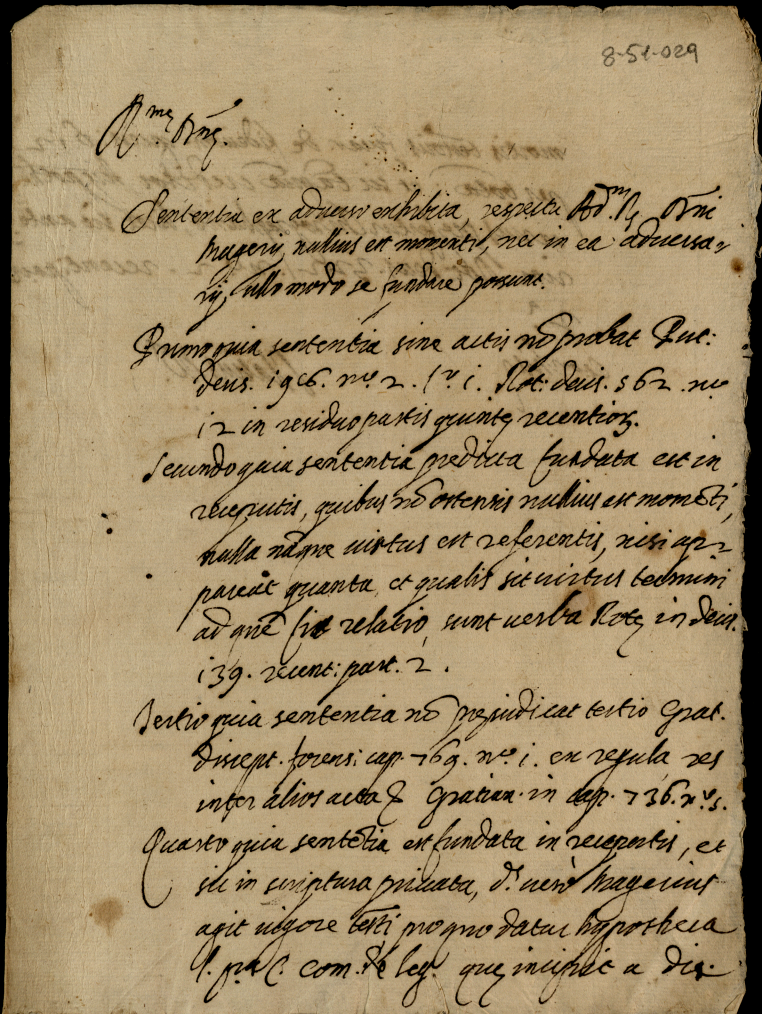 8-51-029
R.me Dne.
Sententia ex adverso exhibita, respectu Ad.m R. Dni
Magerij nullius est momenti, nec in ea adversa-
rij ullo modo se fundare possunt.
Primo quia sententia sine actis nō probat Put:
decis. 196. n.o 2. l.o i. Rot: decis. 562. n.o
12 in residuo partis quintę recentior.
Secundo quia sententia predicta fundata est in
receputis, quibus nō ostensis nullius est momēti,
nulla nāque virtus est referentis, nisi ap-
pareat quanta, et qualis sit virtus termini
ad quē fit relatio, sunt verba Rotę in decis.
139. recent: part. 2.
Tertio quia sententia nō pręiudicat tertio Grat.
discept. forens: cap. 769. n.o i. ex regula res
inter alios acta & Gratian. in cap. 736. n.o 5.
Quarto quia sentētia est fundata in receptis, et
sic in scriptura privata, d.s verò Magerius
agit vigore testi pro quo datur hypotheca
l. p.a C. com. de leg. quę incipit a die